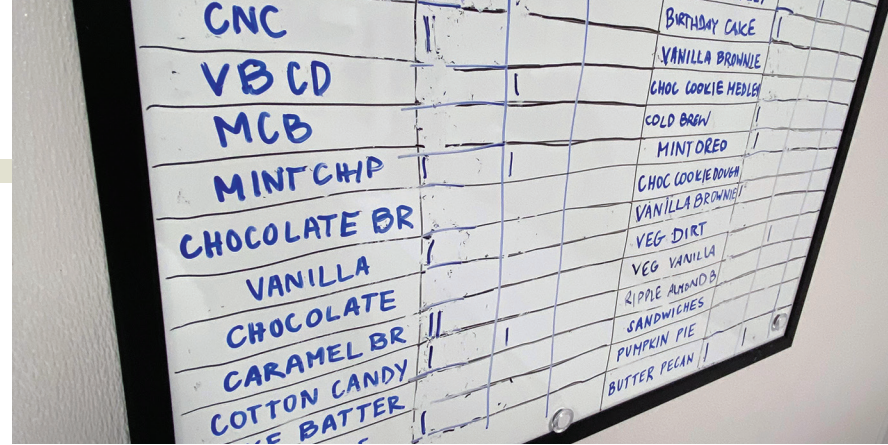 CNC
VB CD
MCB
MINT CHIP
CHOCOLATE BR
VANILLA
CHOCOLATE
CARAMEL BR
COTTON CANDY
BATTER
BIRTHDAY CAKE
VANILLA BROWNIE
CHOC COOKIE MEDLEY
COLD BREW
MINT OREO
CHOC COOKIE DOUGH
VANILLA BROWNIE
VEG DIRT
VEG VANILLA
RIPPLE ALMOND B
SANDWICHES
PUMPKIN PIE
BUTTER PECAN